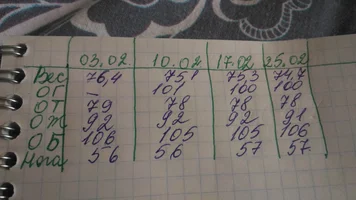 03.02. 10.02. 17.02 25.02
Вес 76,4 75,1 75,3 74,7
ОГ – 101 100 100
ОТ 79 78 78 78
ОЖ 92 92 92 91
ОБ 106 105 105 106
Нога 56 56 57 57